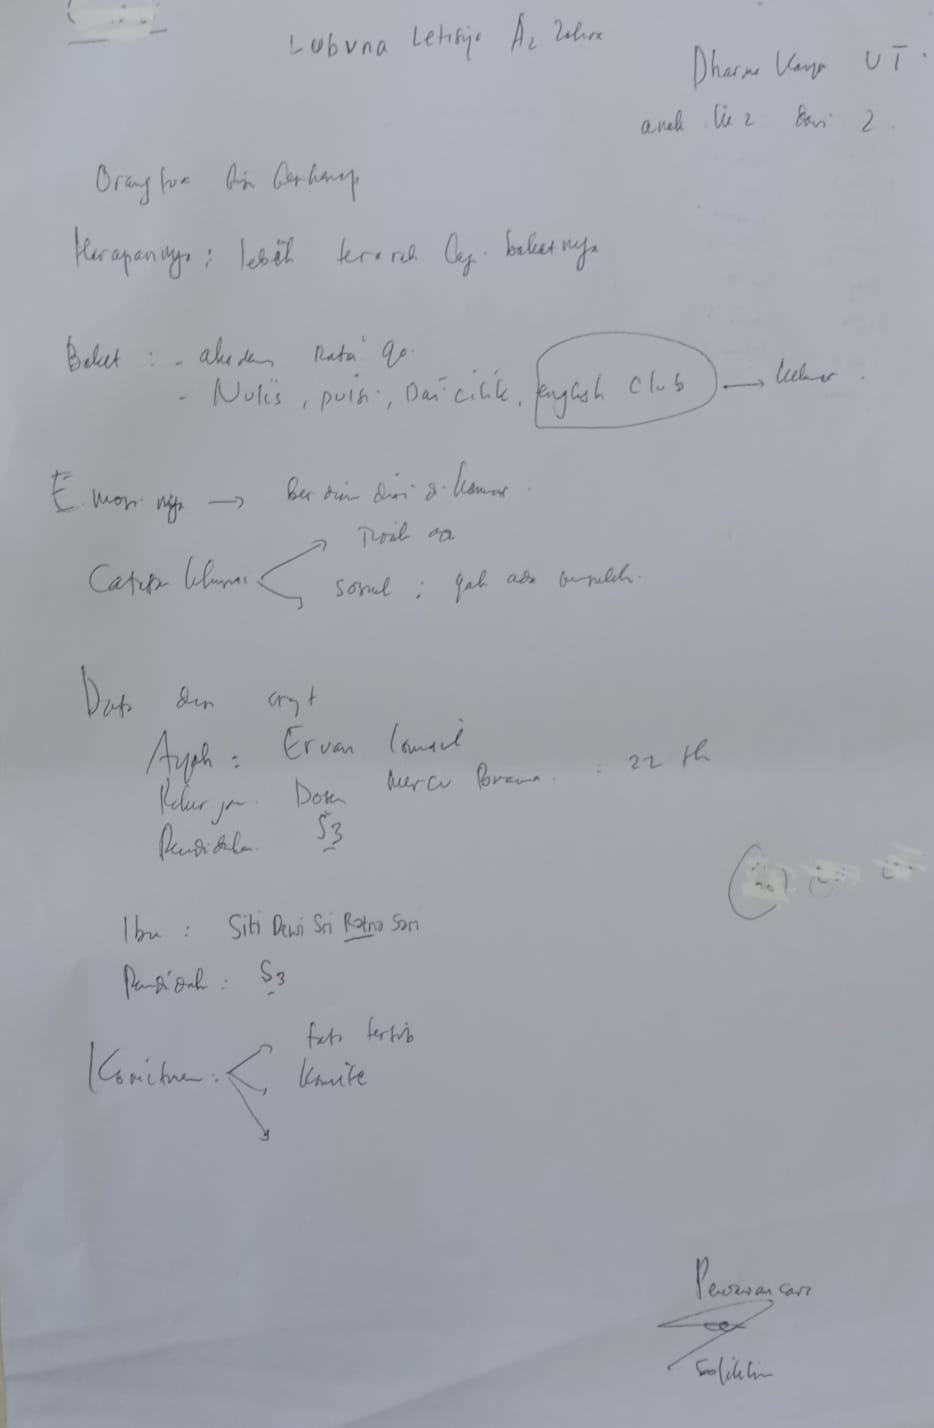 Lubvna Letisya Az Zahra
Dharma Karya UT
anak ke 2 dari 2
Orang tua berharap
Harapannya : lebih terarah lag. bakatnya
Bakat : - akadem rata" 90
- Nulis, puisi, Dai cilik, english club → keluar
Emosinya → Ber diam diri d. kamar
Catatan khusus
sosial : gak ada masalah
Data dan
Ayah : Ervan Ismail
Pekerjaan Dosen Mercu Buana : 22 th
Pendidikan S3
Ibu : Siti Dewi Sri Ratna Sari
Pendidik : S3
Komitmen : tata tertib
Komite
Pewawancara
Solikhin